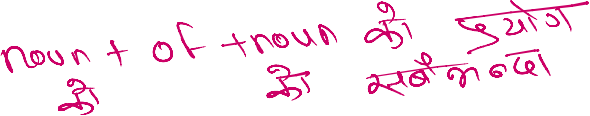 noun + of + noun को प्रयोग
को को सबैभन्दा